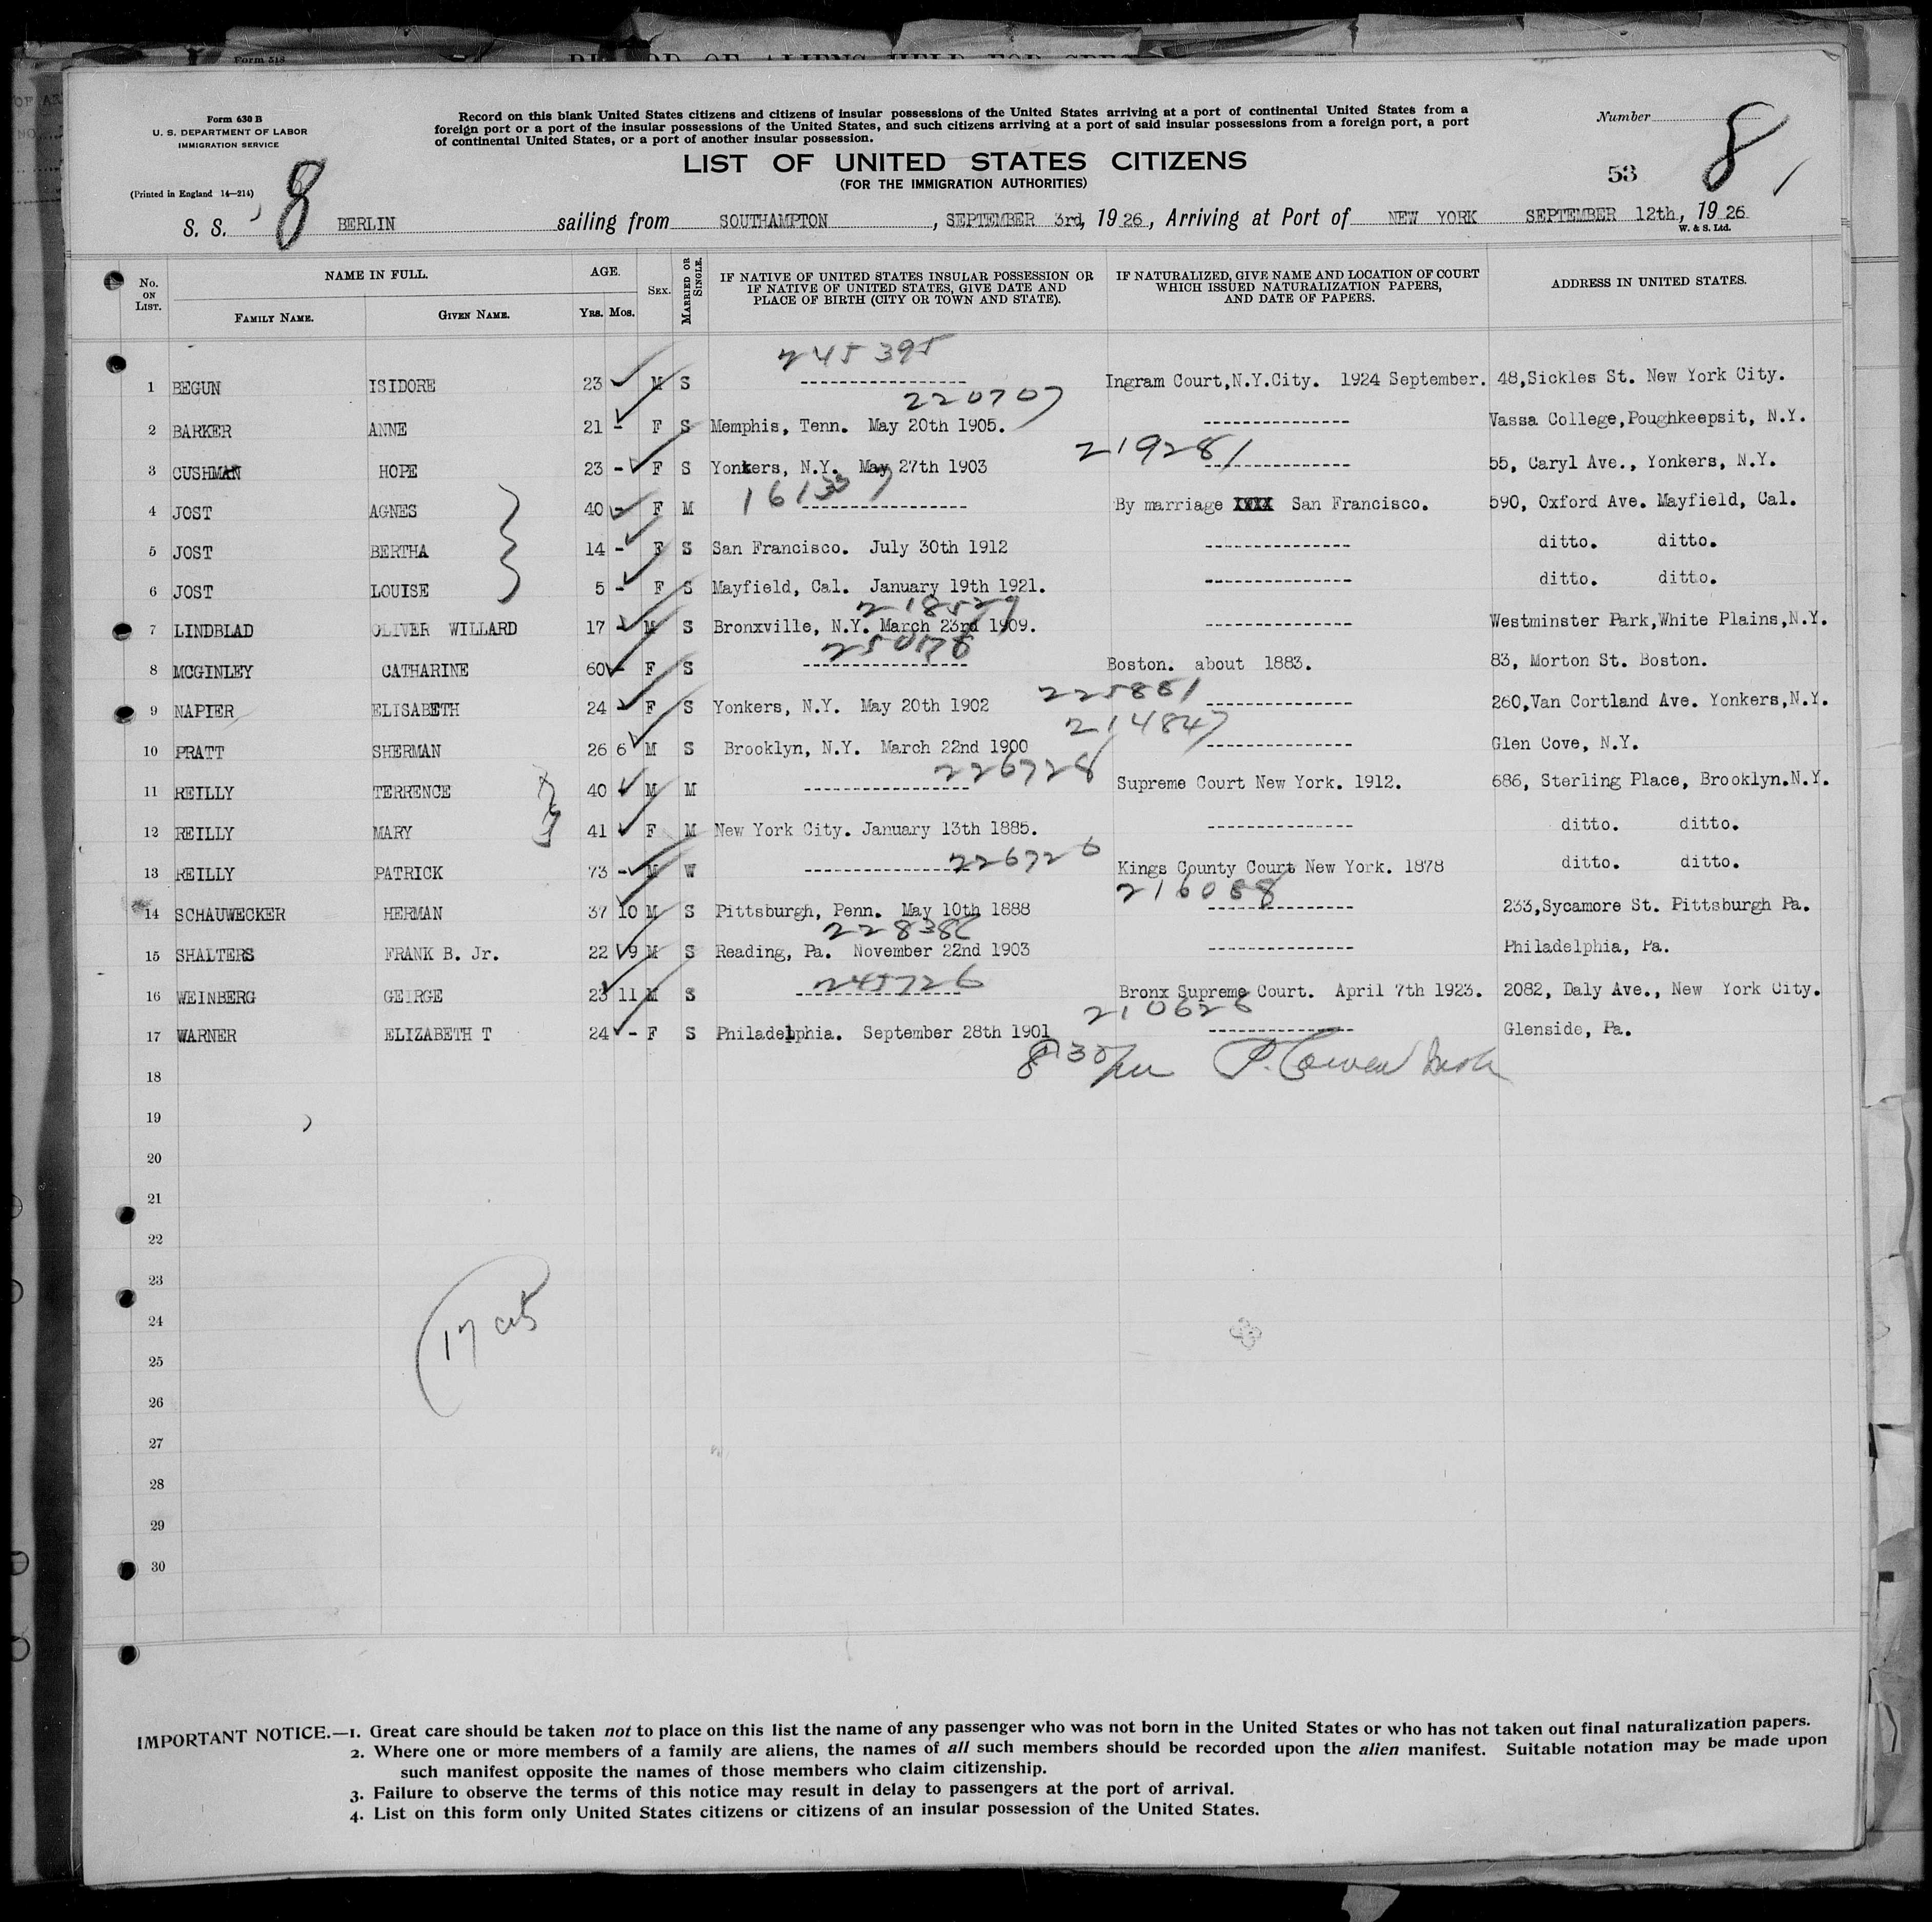 Form 518
Form 630 B
U. S. DEPARTMENT OF LABOR
IMMIGRATION SERVICE
(Printed in England 14—214)
Record on this blank United States citizens and citizens of insular possessions of the United States arriving at a port of continental United States from a
foreign port or a port of the insular possessions of the United States, and such citizens arriving at a port of said insular possessions from a foreign port, a port
of continental United States, or a port of another insular possession.
LIST OF UNITED STATES CITIZENS
(FOR THE IMMIGRATION AUTHORITIES)
Number 8
53
8
S. S. BERLIN sailing from SOUTHAMPTON, SEPTEMBER 3rd, 1926, Arriving at Port of NEW YORK SEPTEMBER 12th, 1926
W. & S. Ltd.
No. ON LIST. NAME IN FULL. FAMILY NAME. GIVEN NAME. AGE. YRS. MOS. SEX. MARRIED OR SINGLE. IF NATIVE OF UNITED STATES INSULAR POSSESSION OR IF NATIVE OF UNITED STATES, GIVE DATE AND PLACE OF BIRTH (CITY OR TOWN AND STATE). IF NATURALIZED, GIVE NAME AND LOCATION OF COURT WHICH ISSUED NATURALIZATION PAPERS, AND DATE OF PAPERS. ADDRESS IN UNITED STATES.
245395
1 BEGUN ISIDORE 23 M S ----------------- Ingram Court,N.Y.City. 1924 September. 48,Sickles St. New York City.
220707
2 BARKER ANNE 21 - F S Memphis, Tenn. May 20th 1905. --------------- Vassa College,Poughkeepsit, N.Y.
219281
3 CUSHMAN HOPE 23 - F S Yonkers, N.Y. May 27th 1903 --------------- 55, Caryl Ave., Yonkers, N.Y.
4 JOST AGNES 40 - F M ----------------- By marriage XXXX San Francisco. 590, Oxford Ave. Mayfield, Cal.
5 JOST BERTHA 14 - F S San Francisco. July 30th 1912 --------------- ditto. ditto.
6 JOST LOUISE 5 - F S Mayfield, Cal. January 19th 1921. --------------- ditto. ditto.
218529
7 LINDBLAD OLIVER WILLARD 17 - M S Bronxville, N.Y. March 23rd 1909. --------------- Westminster Park,White Plains,N.Y.
8 MCGINLEY CATHARINE 60 - F S ----------------- Boston. about 1883. 83, Morton St. Boston.
225881
9 NAPIER ELISABETH 24 - F S Yonkers, N.Y. May 20th 1902 --------------- 260,Van Cortland Ave. Yonkers,N.Y.
214847
10 PRATT SHERMAN 26 6 M S Brooklyn, N.Y. March 22nd 1900 --------------- Glen Cove, N.Y.
226728
11 REILLY TERRENCE 40 M M ----------------- Supreme Court New York. 1912. 686, Sterling Place, Brooklyn.N.Y.
12 REILLY MARY 41 F M New York City. January 13th 1885. --------------- ditto. ditto.
226726
13 REILLY PATRICK 73 - M W ----------------- Kings County Court New York. 1878 ditto. ditto.
216088
14 SCHAUWECKER HERMAN 37 10 M S Pittsburgh, Penn. May 10th 1888 --------------- 233,Sycamore St. Pittsburgh Pa.
15 SHALTERS FRANK B. Jr. 22 9 M S Reading, Pa. November 22nd 1903 --------------- Philadelphia, Pa.
245726
16 WEINBERG GEIRGE 23 11 M S ----------------- Bronx Supreme Court. April 7th 1923. 2082, Daly Ave., New York City.
210626
17 WARNER ELIZABETH T 24 - F S Philadelphia. September 28th 1901 --------------- Glenside, Pa.
18
19
20
21
22
23
24
25
26
27
28
29
30
IMPORTANT NOTICE.—1. Great care should be taken not to place on this list the name of any passenger who was not born in the United States or who has not taken out final naturalization papers.
2. Where one or more members of a family are aliens, the names of all such members should be recorded upon the alien manifest. Suitable notation may be made upon
such manifest opposite the names of those members who claim citizenship.
3. Failure to observe the terms of this notice may result in delay to passengers at the port of arrival.
4. List on this form only United States citizens or citizens of an insular possession of the United States.